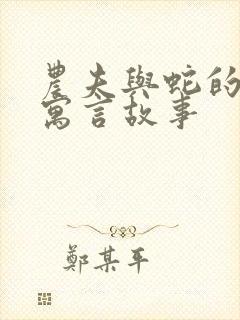 農夫與蛇的
寓言故事
鄭某平